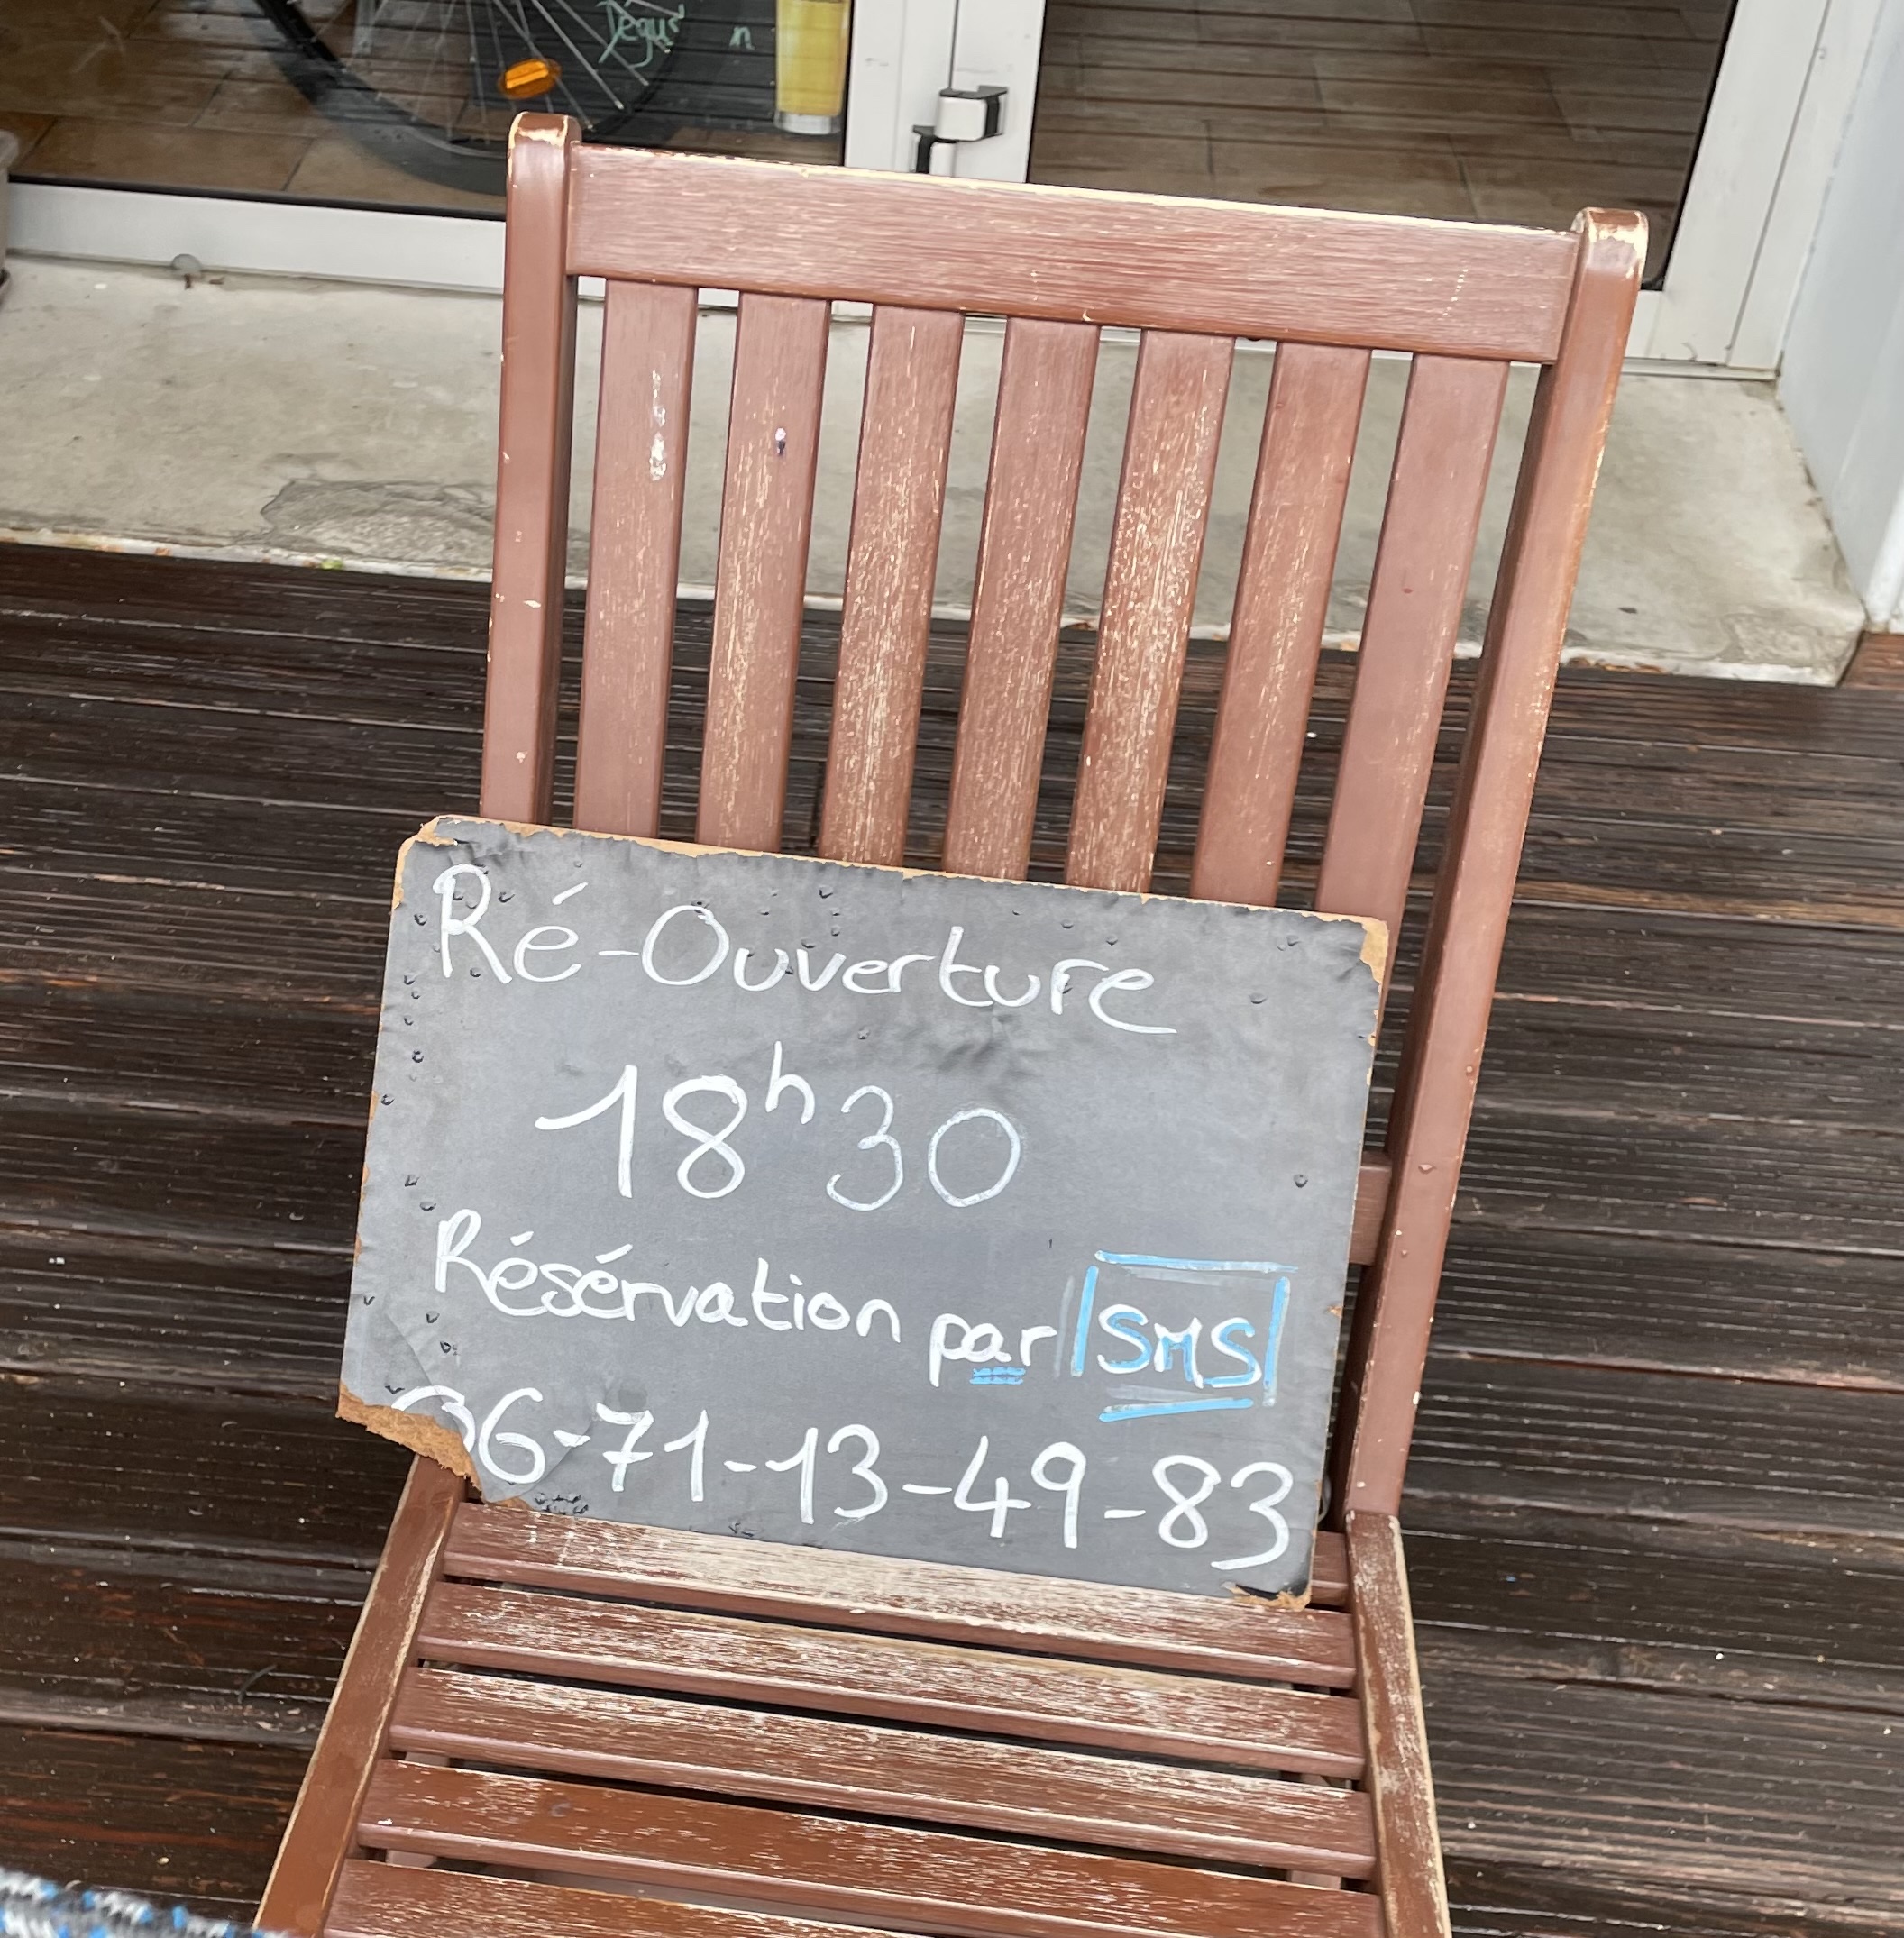 Ré-Ouverture
18h30
Résérvation par SMS
06-71-13-49-83